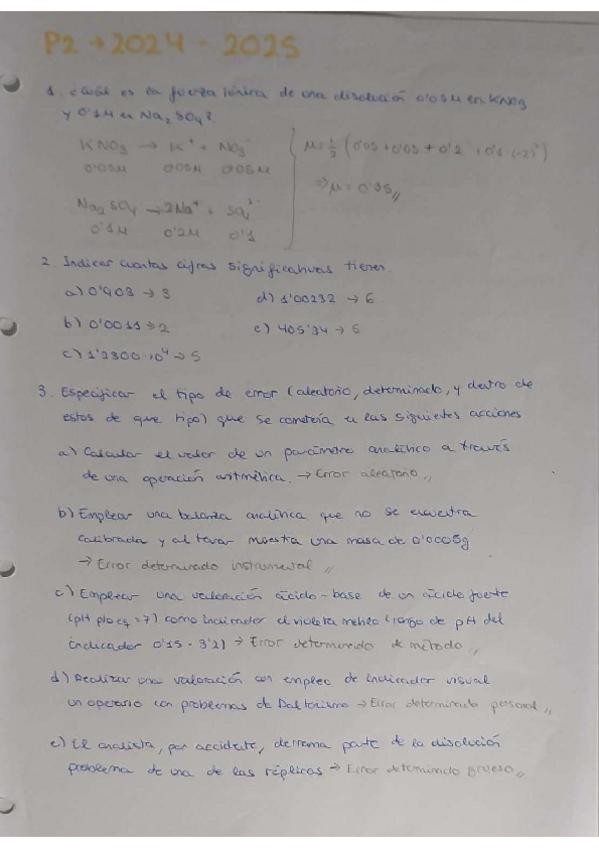 P2 → 2024 - 2025
1. ¿Cuál es la fuerza iónica de una disolución 0'05M en KNO3
y 0'1M en Na2SO4?
KNO3 → K+ + NO3-
0'05M 0'05M 0'05M
μ = 1/2 (0'05 + 0'05 + 0'2 + 0'1·(-2)²)
⇒ μ = 0'35 //
Na2SO4 → 2Na+ + SO4 2-
0'1M 0'2M 0'1
2. Indicar cuantas cifras significativas tienen
a) 0'903 → 3 d) 1'00232 → 6
b) 0'0011 → 2 e) 405'34 → 5
c) 1'2300·10⁴ → 5
3. Especificar el tipo de error (aleatorio, determinado, y dentro de
estos de que tipo) que se cometería en las siguientes acciones
a) Calcular el valor de un parámetro analítico a través
de una operación aritmética. → Error aleatorio //
b) Emplear una balanza analítica que no se encuentra
calibrada y al tarar muestra una masa de 0'0005g
→ Error determinado instrumental //
c) Emplear una valoración ácido-base de un ácido fuerte
(pH pto eq = 7) como indicador el violeta metilo (rango de pH del
indicador 0'15 - 3'2) → Error determinado de método //
d) Realizar una valoración con empleo de indicador visual
un operario con problemas de Daltonismo → Error determinado personal //
e) El analista, por accidente, derrama parte de la disolución
problema de una de las réplicas → Error determinado grueso //